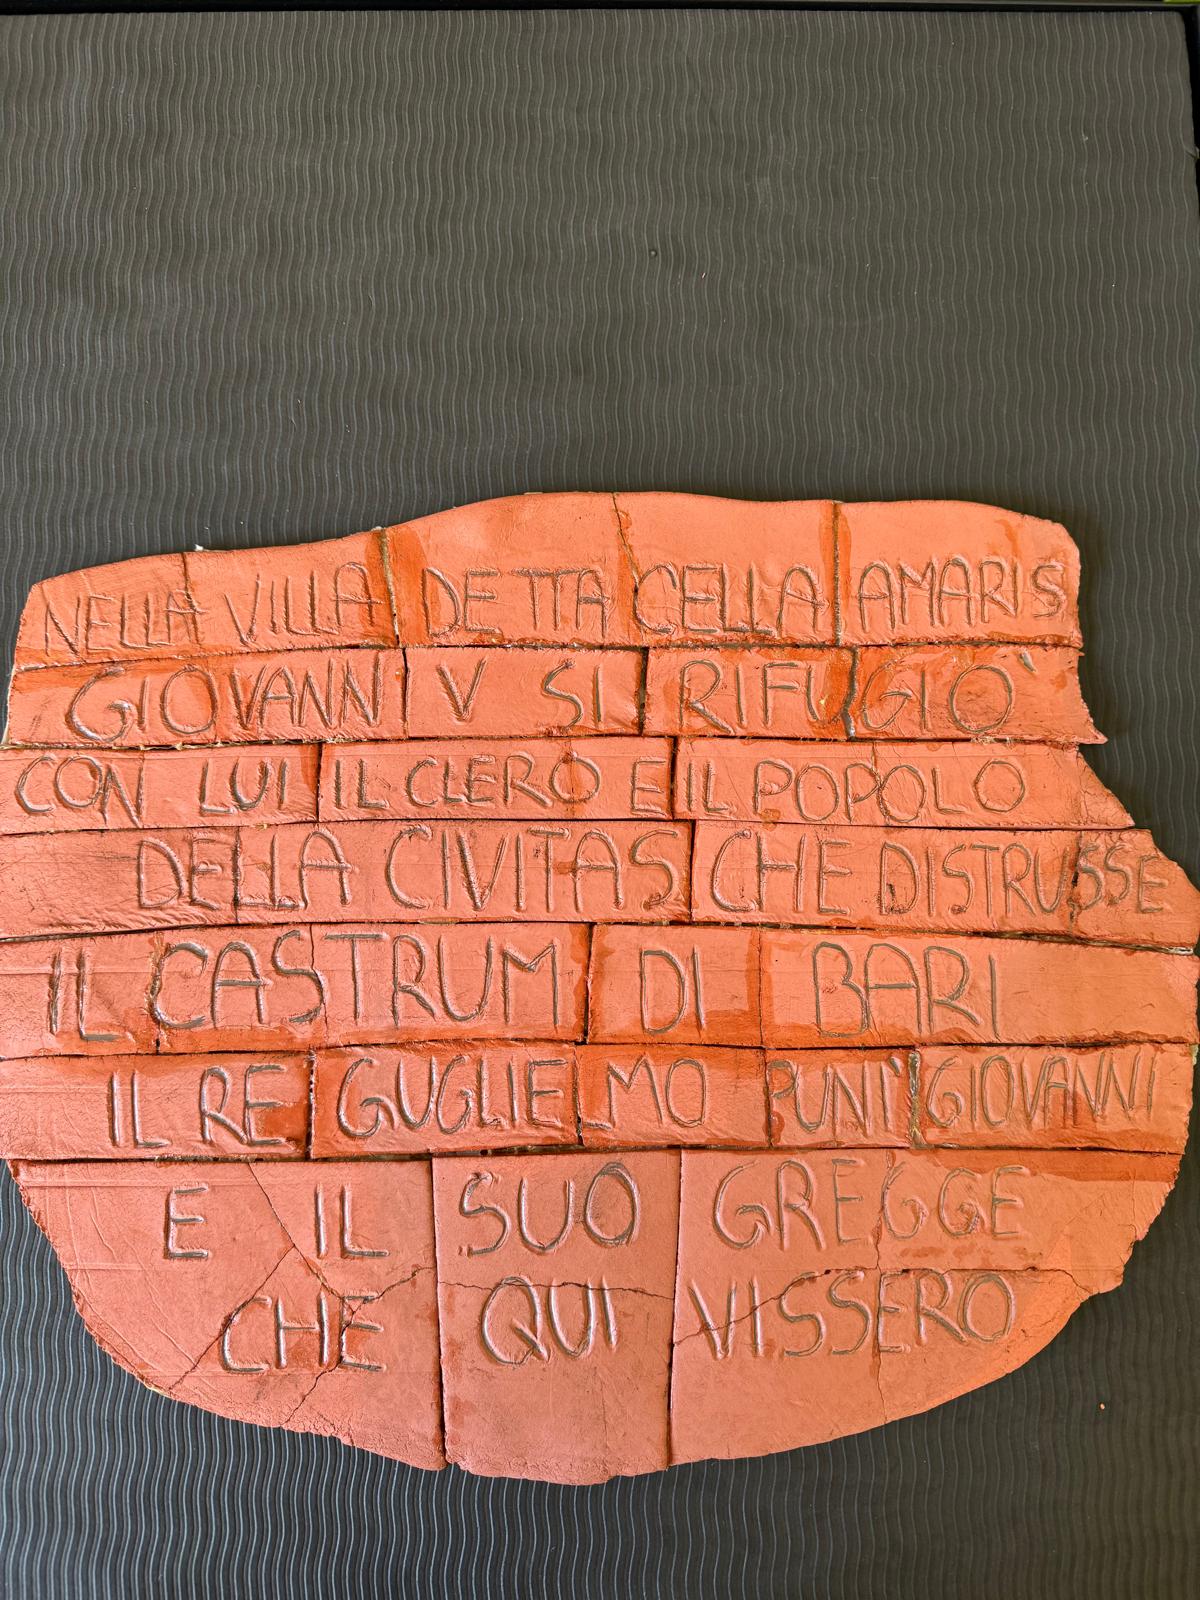 NELLA VILLA DETTA CELLA AMARIS
GIOVANNI V SI RIFUGIÒ
CON LUI IL CLERO E IL POPOLO
DELLA CIVITAS CHE DISTRUSSE
IL CASTRUM DI BARI
IL RE GUGLIELMO PUNÌ GIOVANNI
E IL SUO GREGGE
CHE QUI VISSERO